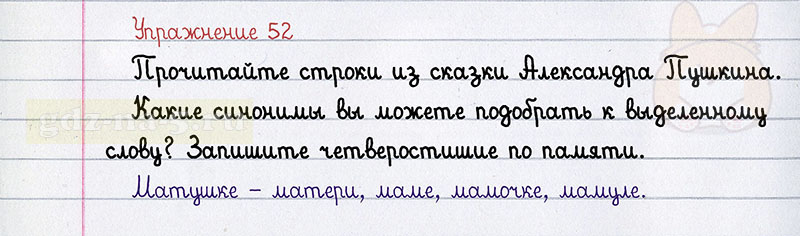 Упражнение 52
Прочитайте строки из сказки Александра Пушкина.
Какие синонимы вы можете подобрать к выделенному
слову? Запишите четверостишие по памяти.
Матушке – матери, маме, мамочке, мамуле.